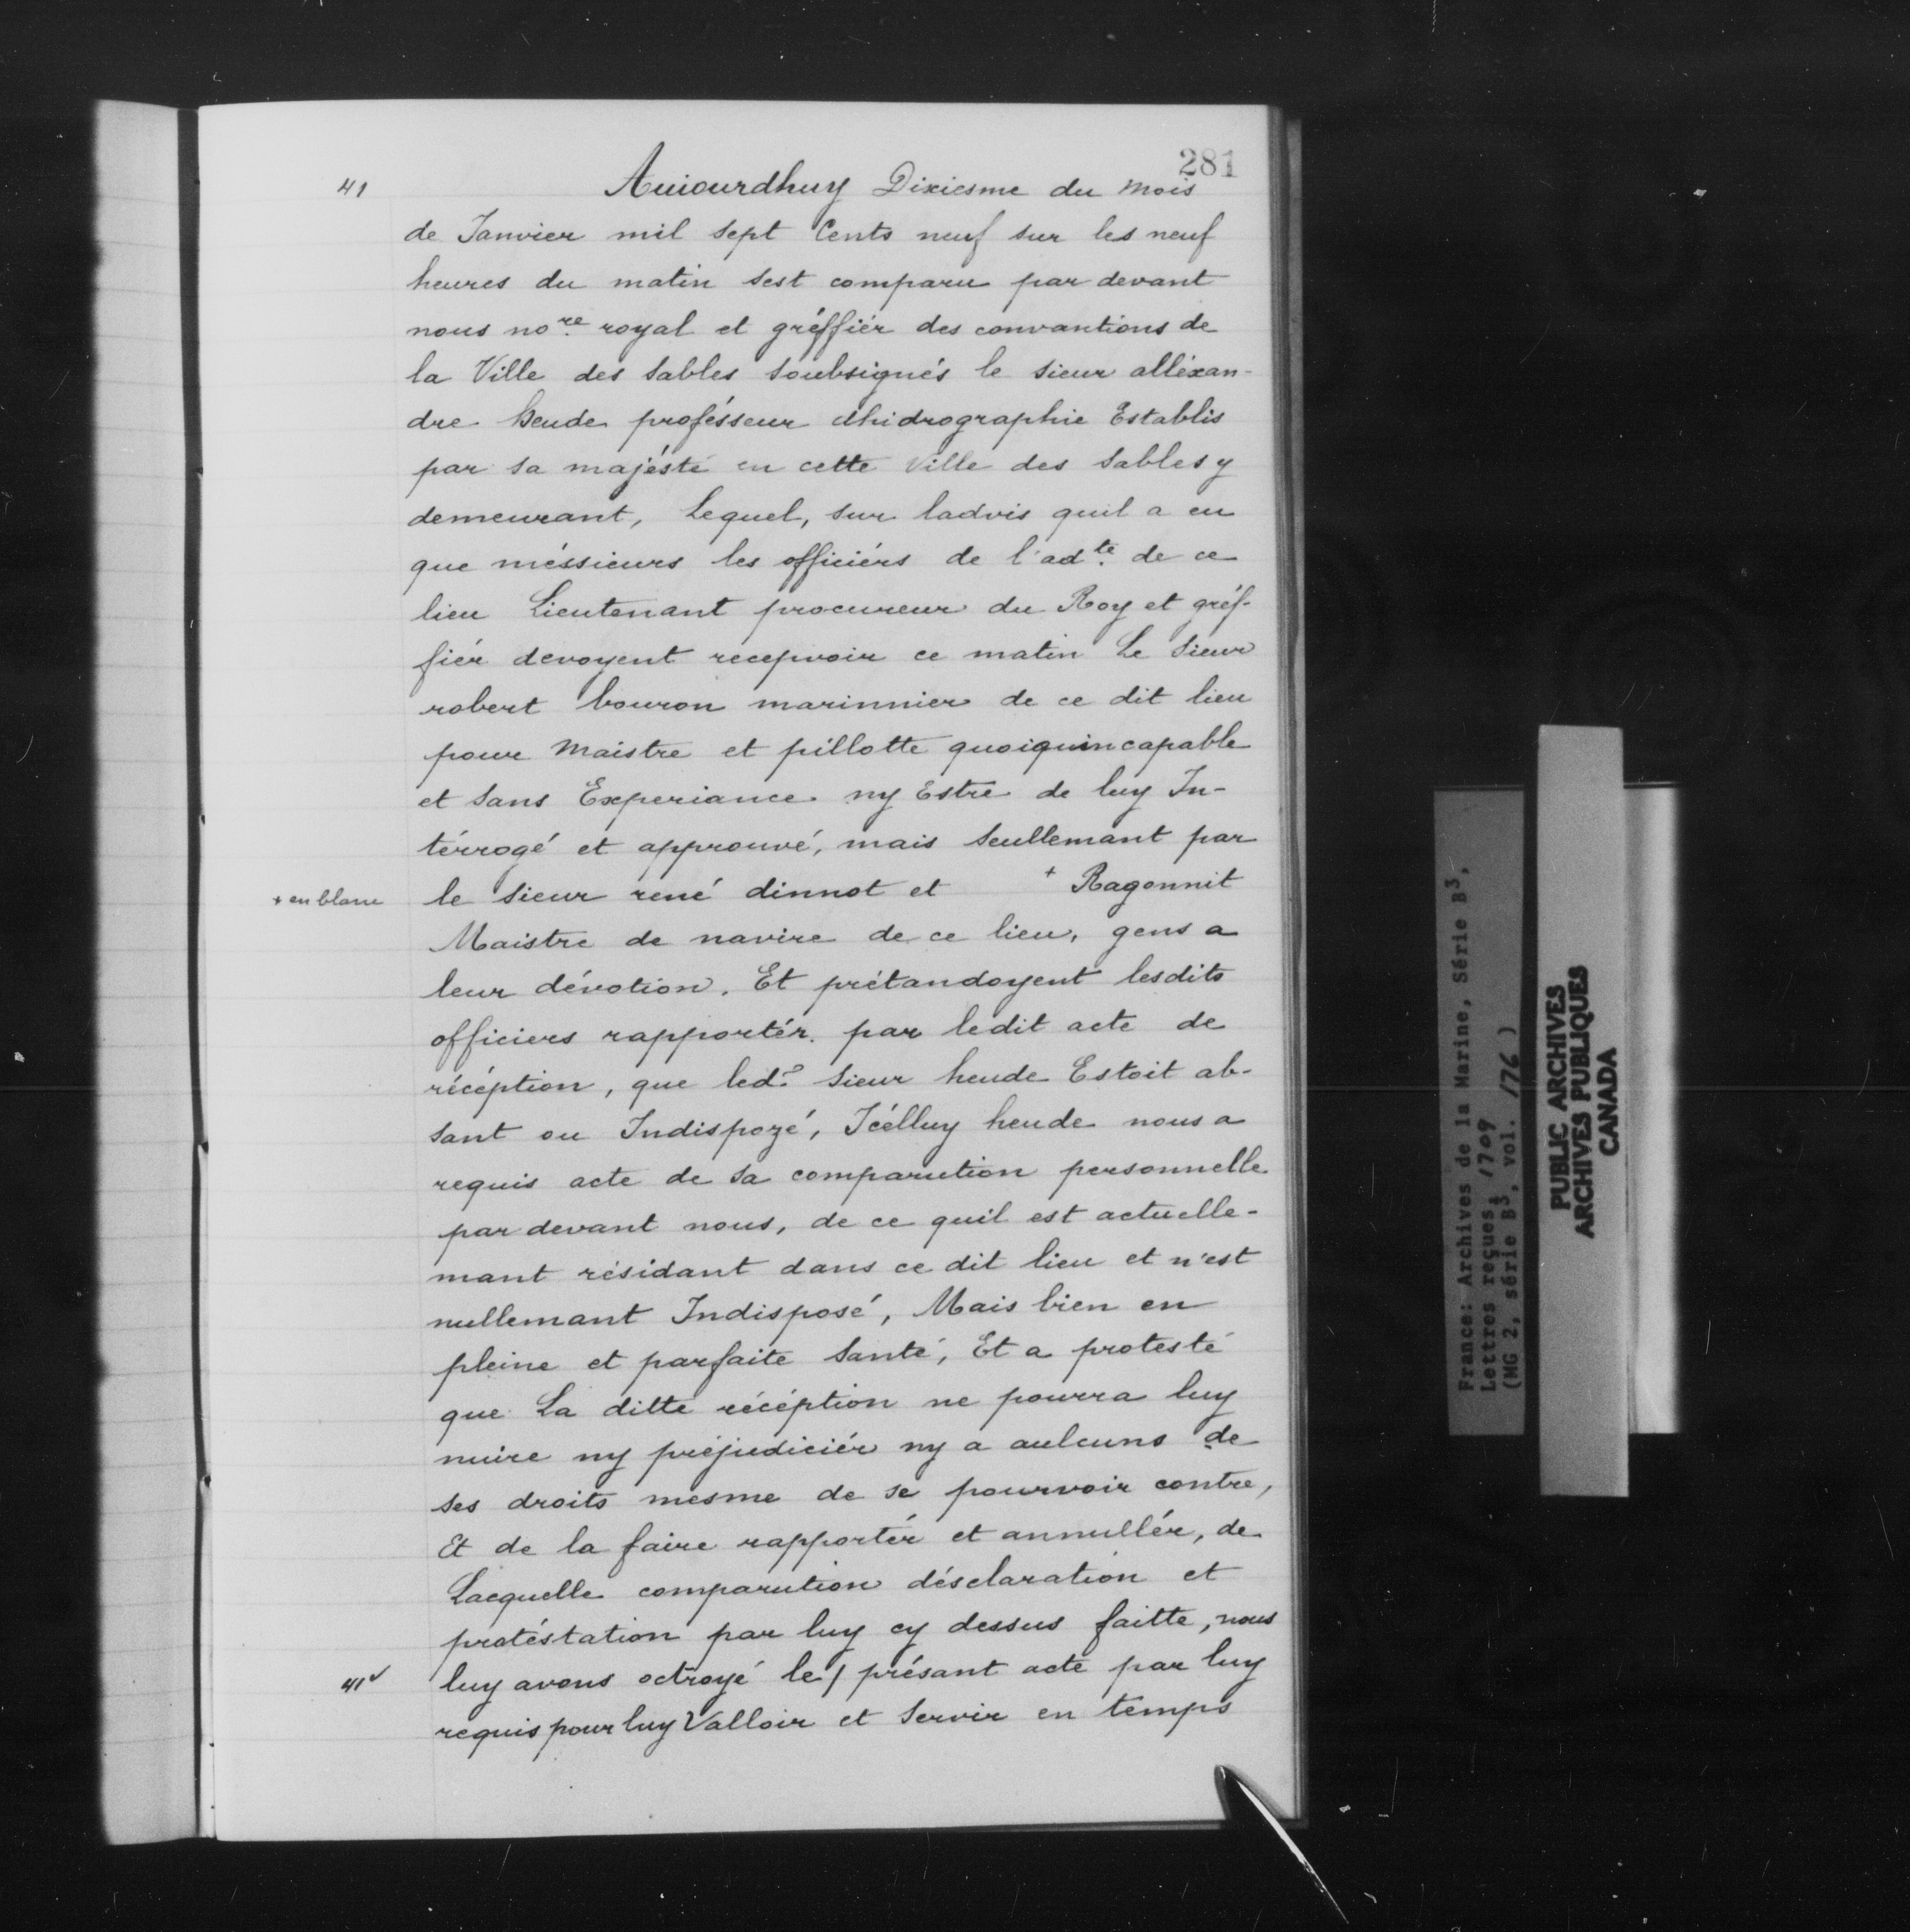 281
41
Auiourdhuy Dixiesme du mois
de Janvier mil sept Cents neuf sur les neuf
heures du matin sest comparu par devant
nous no.re royal et gréffiér des convantions de
la Ville des Sables Soubsignés le sieur alléxan-
dre heude proféssseur dhidrographie Establis
par sa majésté en cette Ville des Sables y
demeurant, Lequel, sur ladvis quil a eu
que méssieurs les officiérs de l'ad.te de ce
lieu Lieutenant procureur du Roy et gréf-
fiér devoyent recepvoir ce matin Le Sieur
robert bouron marinnier de ce dit lieu
pour Maistre et pillotte quoiquincapable
et sans Experiance ny Estre de luy In-
térrogé et approuvé, mais seullemant par
+ en blanc
le Sieur rené dinnot et + Ragonnit
Maistre de navire de ce lieu, gens a
leur dévotion. Et prétandoyent lesdits
officiers rapportér par ledit acte de
récéption, que led.? Sieur heude Estoit ab-
sant ou Indispozé, Icélluy heude nous a
requis acte de sa comparution personnelle
par devant nous, de ce quil est actuelle-
mant résidant dans ce dit lieu et n'est
nullemant Indisposé, Mais bien en
pleine et parfaite Santé, Et a protesté
que La ditte récéption ne pourra luy
nuire ny préjudiciér ny a aulcuns de
ses droits mesme de se pourvoir contre,
Et de la faire rapportér et annullér, de
Lacquelle comparution désclaration et
protéstation par luy cy dessus faitte, nous
41v
luy avons octroyé le / présant acte par luy
requis pour luy Valloir et Servir en temps
France: Archives de la Marine, Série B3,
Lettres reçues, 1709
(MG 2, série B3, vol. 176 )
PUBLIC ARCHIVES
ARCHIVES PUBLIQUES
CANADA